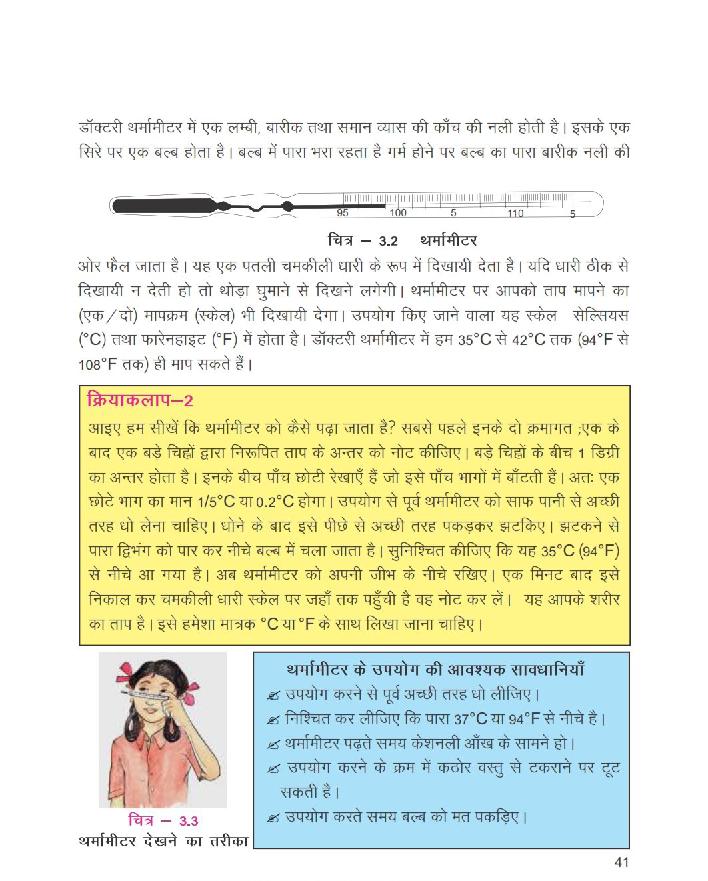 डॉक्टरी थर्मामीटर में एक लम्बी, बारीक तथा समान व्यास की काँच की नली होती है। इसके एक
सिरे पर एक बल्ब होता है। बल्ब में पारा भरा रहता है गर्म होने पर बल्ब का पारा बारीक नली की
95 100 5 110 5
चित्र – 3.2 थर्मामीटर
ओर फैल जाता है। यह एक पतली चमकीली धारी के रूप में दिखायी देता है। यदि धारी ठीक से
दिखायी न देती हो तो थोड़ा घुमाने से दिखने लगेगी। थर्मामीटर पर आपको ताप मापने का
(एक/दो) मापक्रम (स्केल) भी दिखायी देगा। उपयोग किए जाने वाला यह स्केल सेल्सियस
(°C) तथा फारेनहाइट (°F) में होता है। डॉक्टरी थर्मामीटर में हम 35°C से 42°C तक (94°F से
108°F तक) ही माप सकते हैं।
क्रियाकलाप–2
आइए हम सीखें कि थर्मामीटर को कैसे पढ़ा जाता है? सबसे पहले इनके दो क्रमागत ;एक के
बाद एक बड़े चिह्नों द्वारा निरूपित ताप के अन्तर को नोट कीजिए। बड़े चिह्नों के बीच 1 डिग्री
का अन्तर होता है। इनके बीच पाँच छोटी रेखाएँ हैं जो इसे पाँच भागों में बाँटती हैं। अतः एक
छोटे भाग का मान 1/5°C या 0.2°C होगा। उपयोग से पूर्व थर्मामीटर को साफ पानी से अच्छी
तरह धो लेना चाहिए। धोने के बाद इसे पीछे से अच्छी तरह पकड़कर झटकिए। झटकने से
पारा द्विभंग को पार कर नीचे बल्ब में चला जाता है। सुनिश्चित कीजिए कि यह 35°C (94°F)
से नीचे आ गया है। अब थर्मामीटर को अपनी जीभ के नीचे रखिए। एक मिनट बाद इसे
निकाल कर चमकीली धारी स्केल पर जहाँ तक पहुँची है वह नोट कर लें। यह आपके शरीर
का ताप है। इसे हमेशा मात्रक °C या °F के साथ लिखा जाना चाहिए।
चित्र – 3.3
थर्मामीटर देखने का तरीका
थर्मामीटर के उपयोग की आवश्यक सावधानियाँ
✍ उपयोग करने से पूर्व अच्छी तरह धो लीजिए।
✍ निश्चित कर लीजिए कि पारा 37°C या 94°F से नीचे है।
✍ थर्मामीटर पढ़ते समय केशनली आँख के सामने हो।
✍ उपयोग करने के क्रम में कठोर वस्तु से टकराने पर टूट
सकती है।
✍ उपयोग करते समय बल्ब को मत पकड़िए।
41